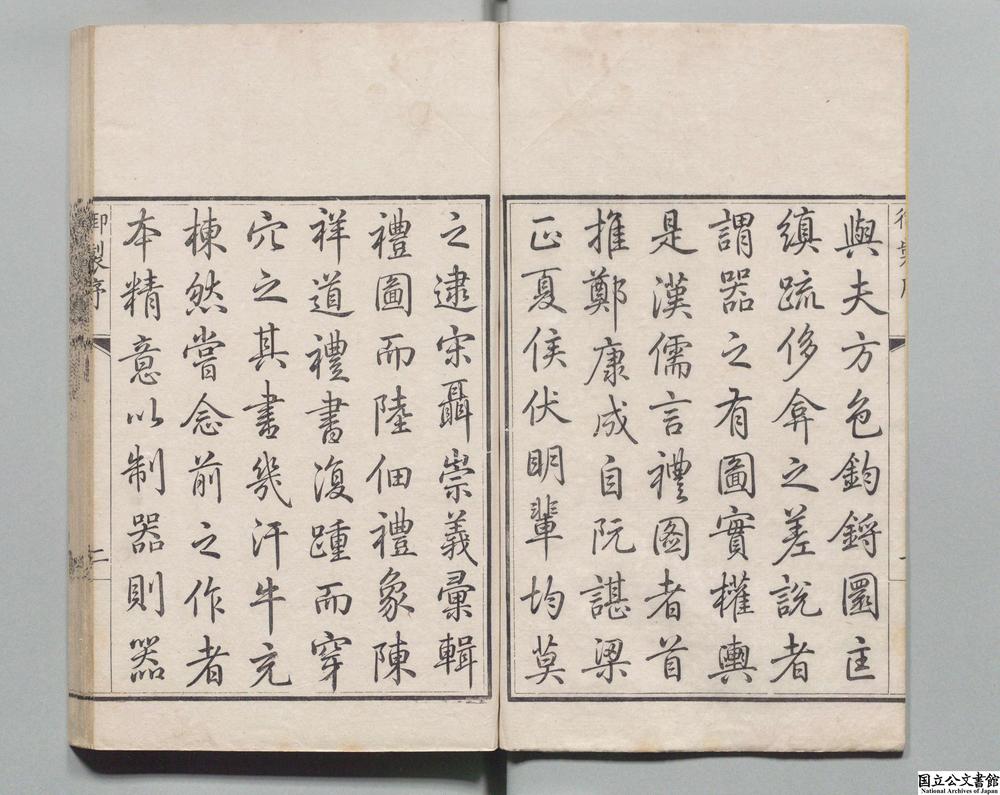 與夫方色鈞鋝圜匡
縝疏侈弇之差說者
謂器之有圖實權輿
是漢儒言禮圖者首
推鄭康成自阮諶梁
正夏侯伏明輩均莫
之逮宋聶崇義彙輯
禮圖而陸佃禮象陳
祥道禮書復踵而穿
穴之其書幾汗牛充
棟然嘗念前之作者
本精意以制器則器
御製序 二
国立公文書館
National Archives of Japan